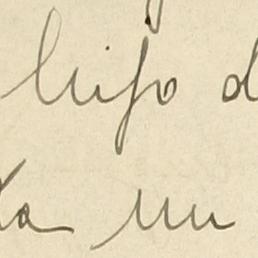 hijo d
ta un